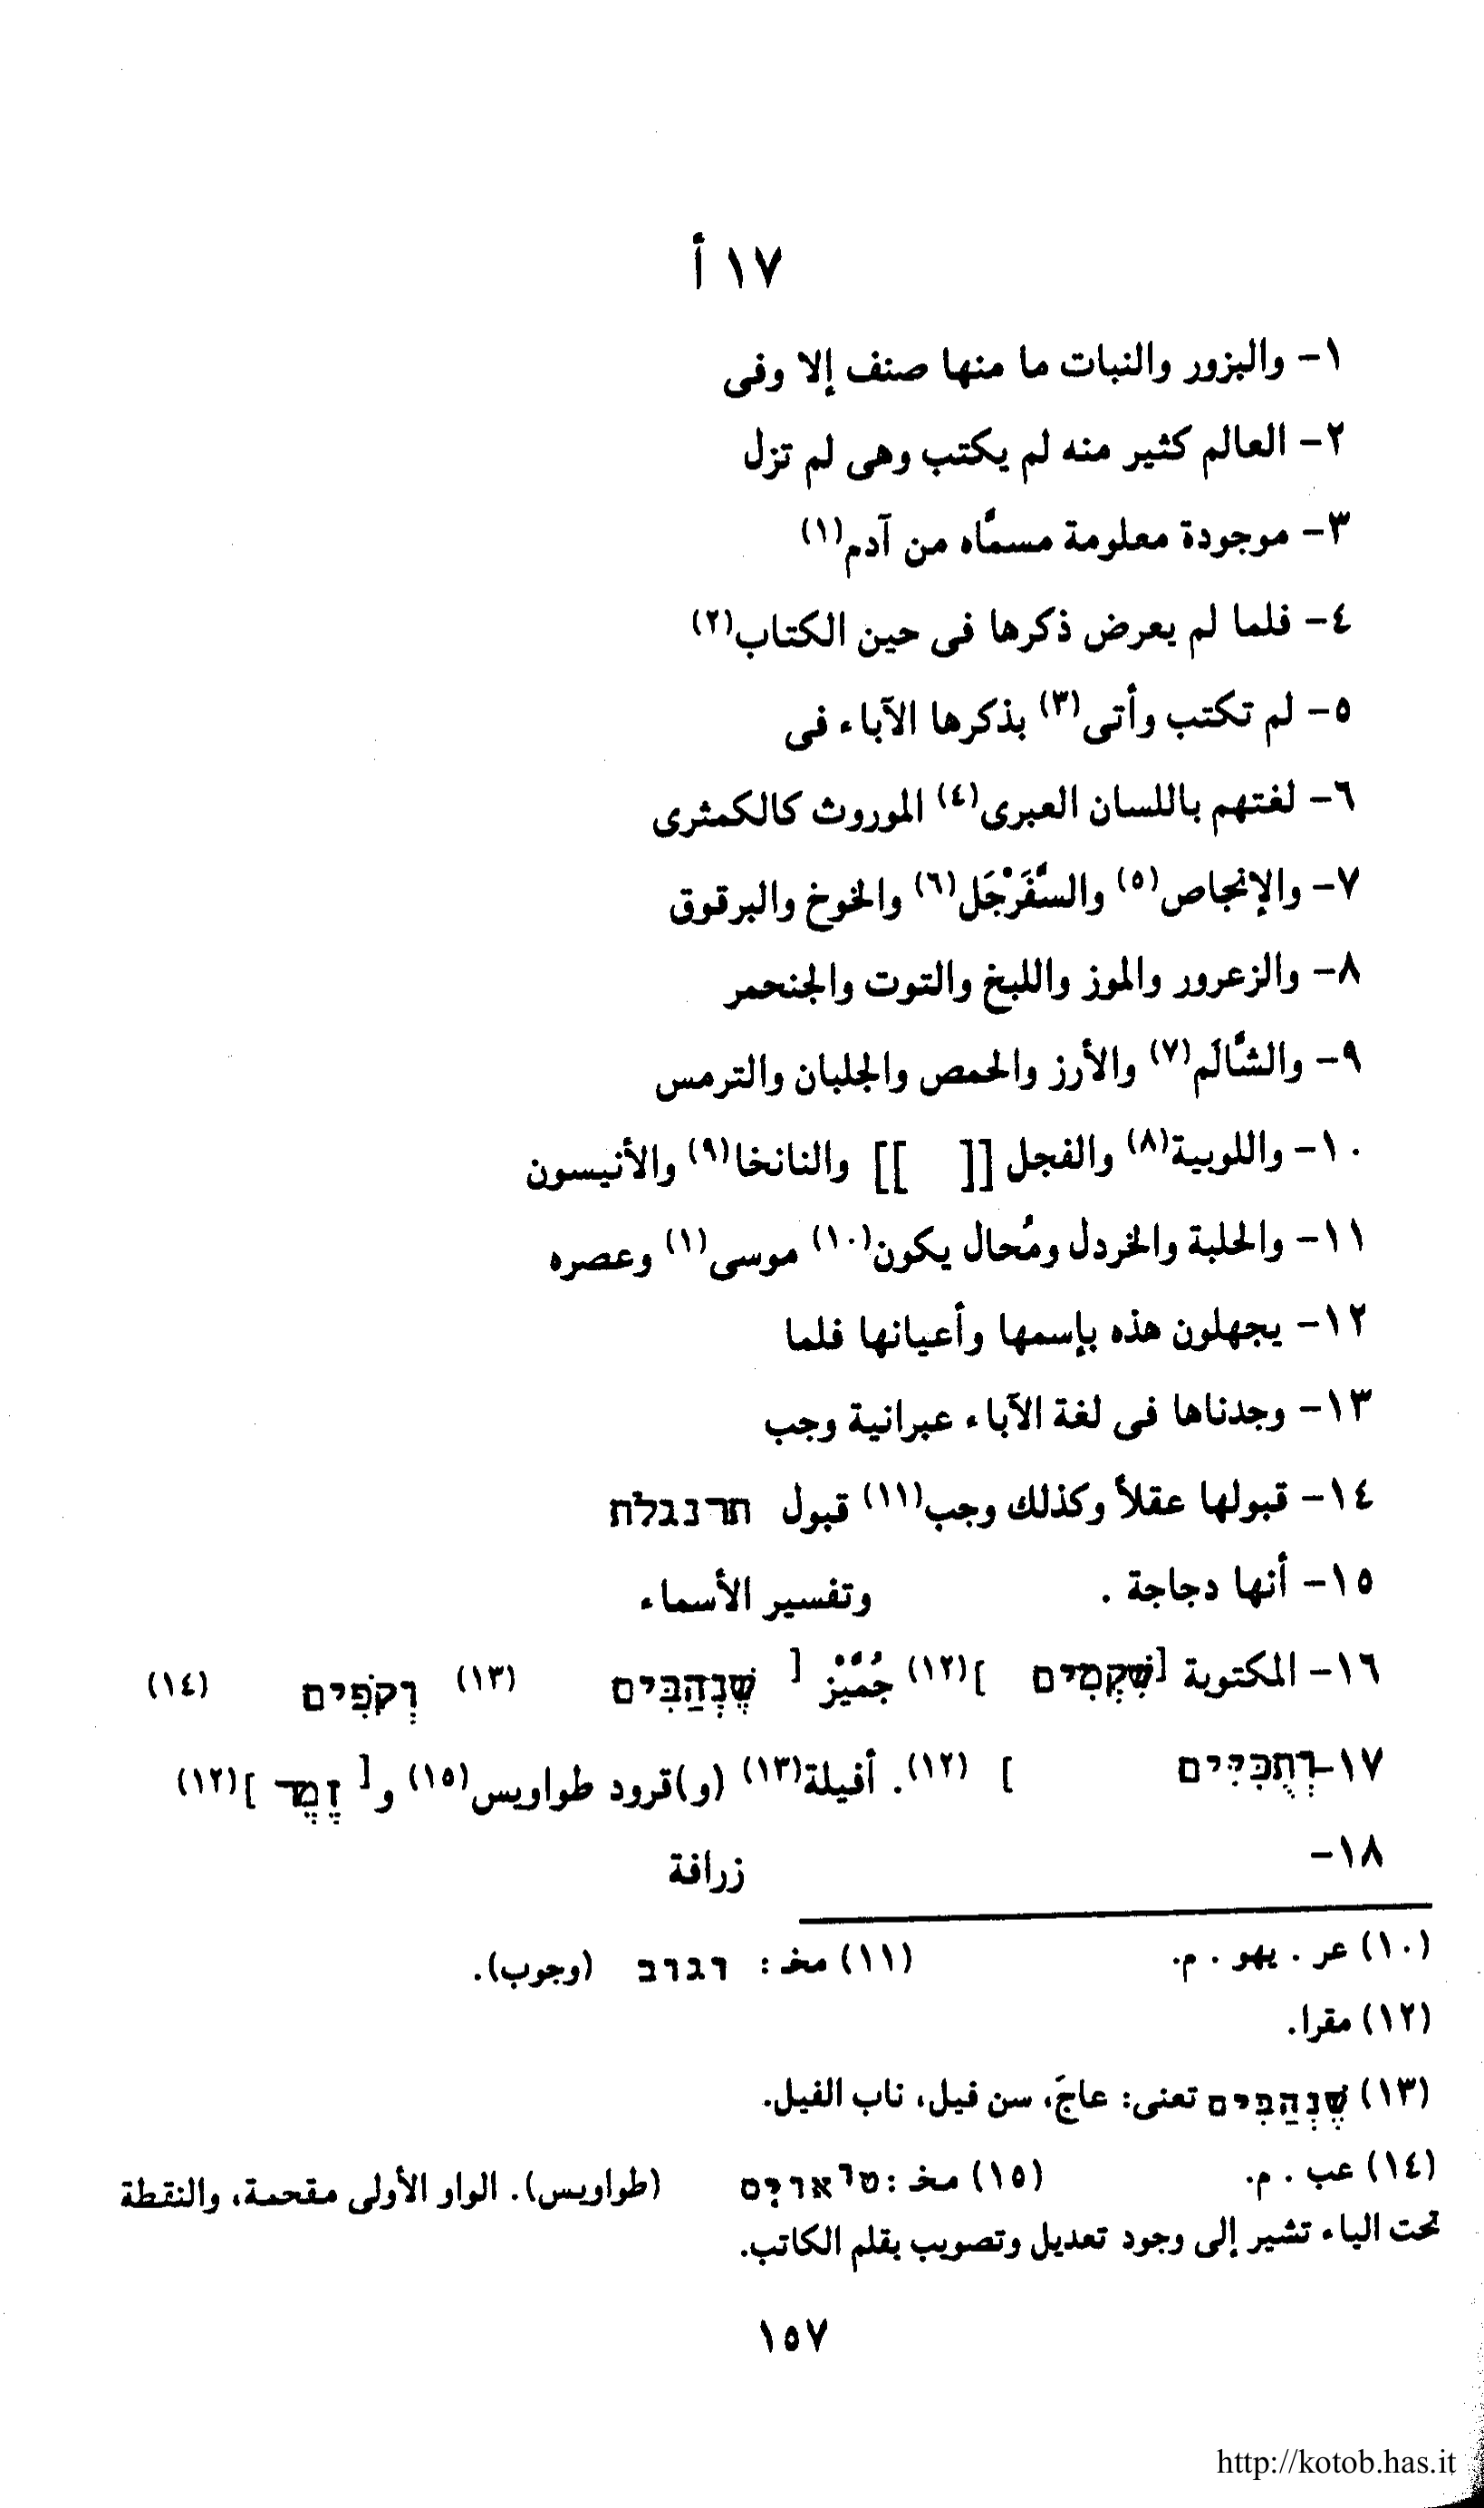 ١٧ أ
١- والبزور والنبات ما منها صنف إلا وفى
٢- العالم كثير منه لم يكتب وهى لم تزل
٣- موجودة معلومة مسمَّاه من آدم(١)
٤- فلما لم يعرض ذكرها فى حين الكتاب(٢)
٥- لم تكتب وأتى(٣) بذكرها الآباء فى
٦- لغتهم باللسان العبرى(٤) الموروث كالكمثرى
٧- والإنجاص(٥) والسَّفَرْجَل(٦) والخوخ والبرقوق
٨- والزعرور والموز واللبخ والتوت والجنحمر
٩- والشَّالَم(٧) والأرز والحمص والجلبان والترمس
١٠- واللوبية(٨) والفجل [[ ]] والنانخا(٩) والأنيسون
١١- والحلبة والخردل ومُحال يكون(١٠) موسى(١) وعصره
١٢- يجهلون هذه بإسمها وأعيانها فلما
١٣- وجدناها فى لغة الآباء عبرانية وجب
١٤- قبولها عقلاً وكذلك وجب(١١) قبول תרנגלת
١٥- أنها دجاجة . وتفسير الأسماء
١٦- المكتوبة [שִׁקְמִים ](١٢) جُمَّيْز [ שֶׁנְהַבִּים (١٣) וְקֹפִים (١٤)
١٧- וְתֻכִּיִּים ] (١٢). أفيلة(١٣) (و)قرود طواويس(١٥) و[ זֶמֶר ](١٢)
١٨- زرافة
(١٠) عر . يهو . م. (١١) مخـ : וגוב (وجوب).
(١٢) مقرا.
(١٣) שֶׁנְהַבִּים تعنى: عاجَ، سن فيل، ناب الفيل.
(١٤) عب . م. (١٥) مخـ : (طواويس). الواو الأولى مقحمة، والنقطة
تحت الياء تشير إلى وجود تعديل وتصويب بقلم الكاتب.
١٥٧
http://kotob.has.it